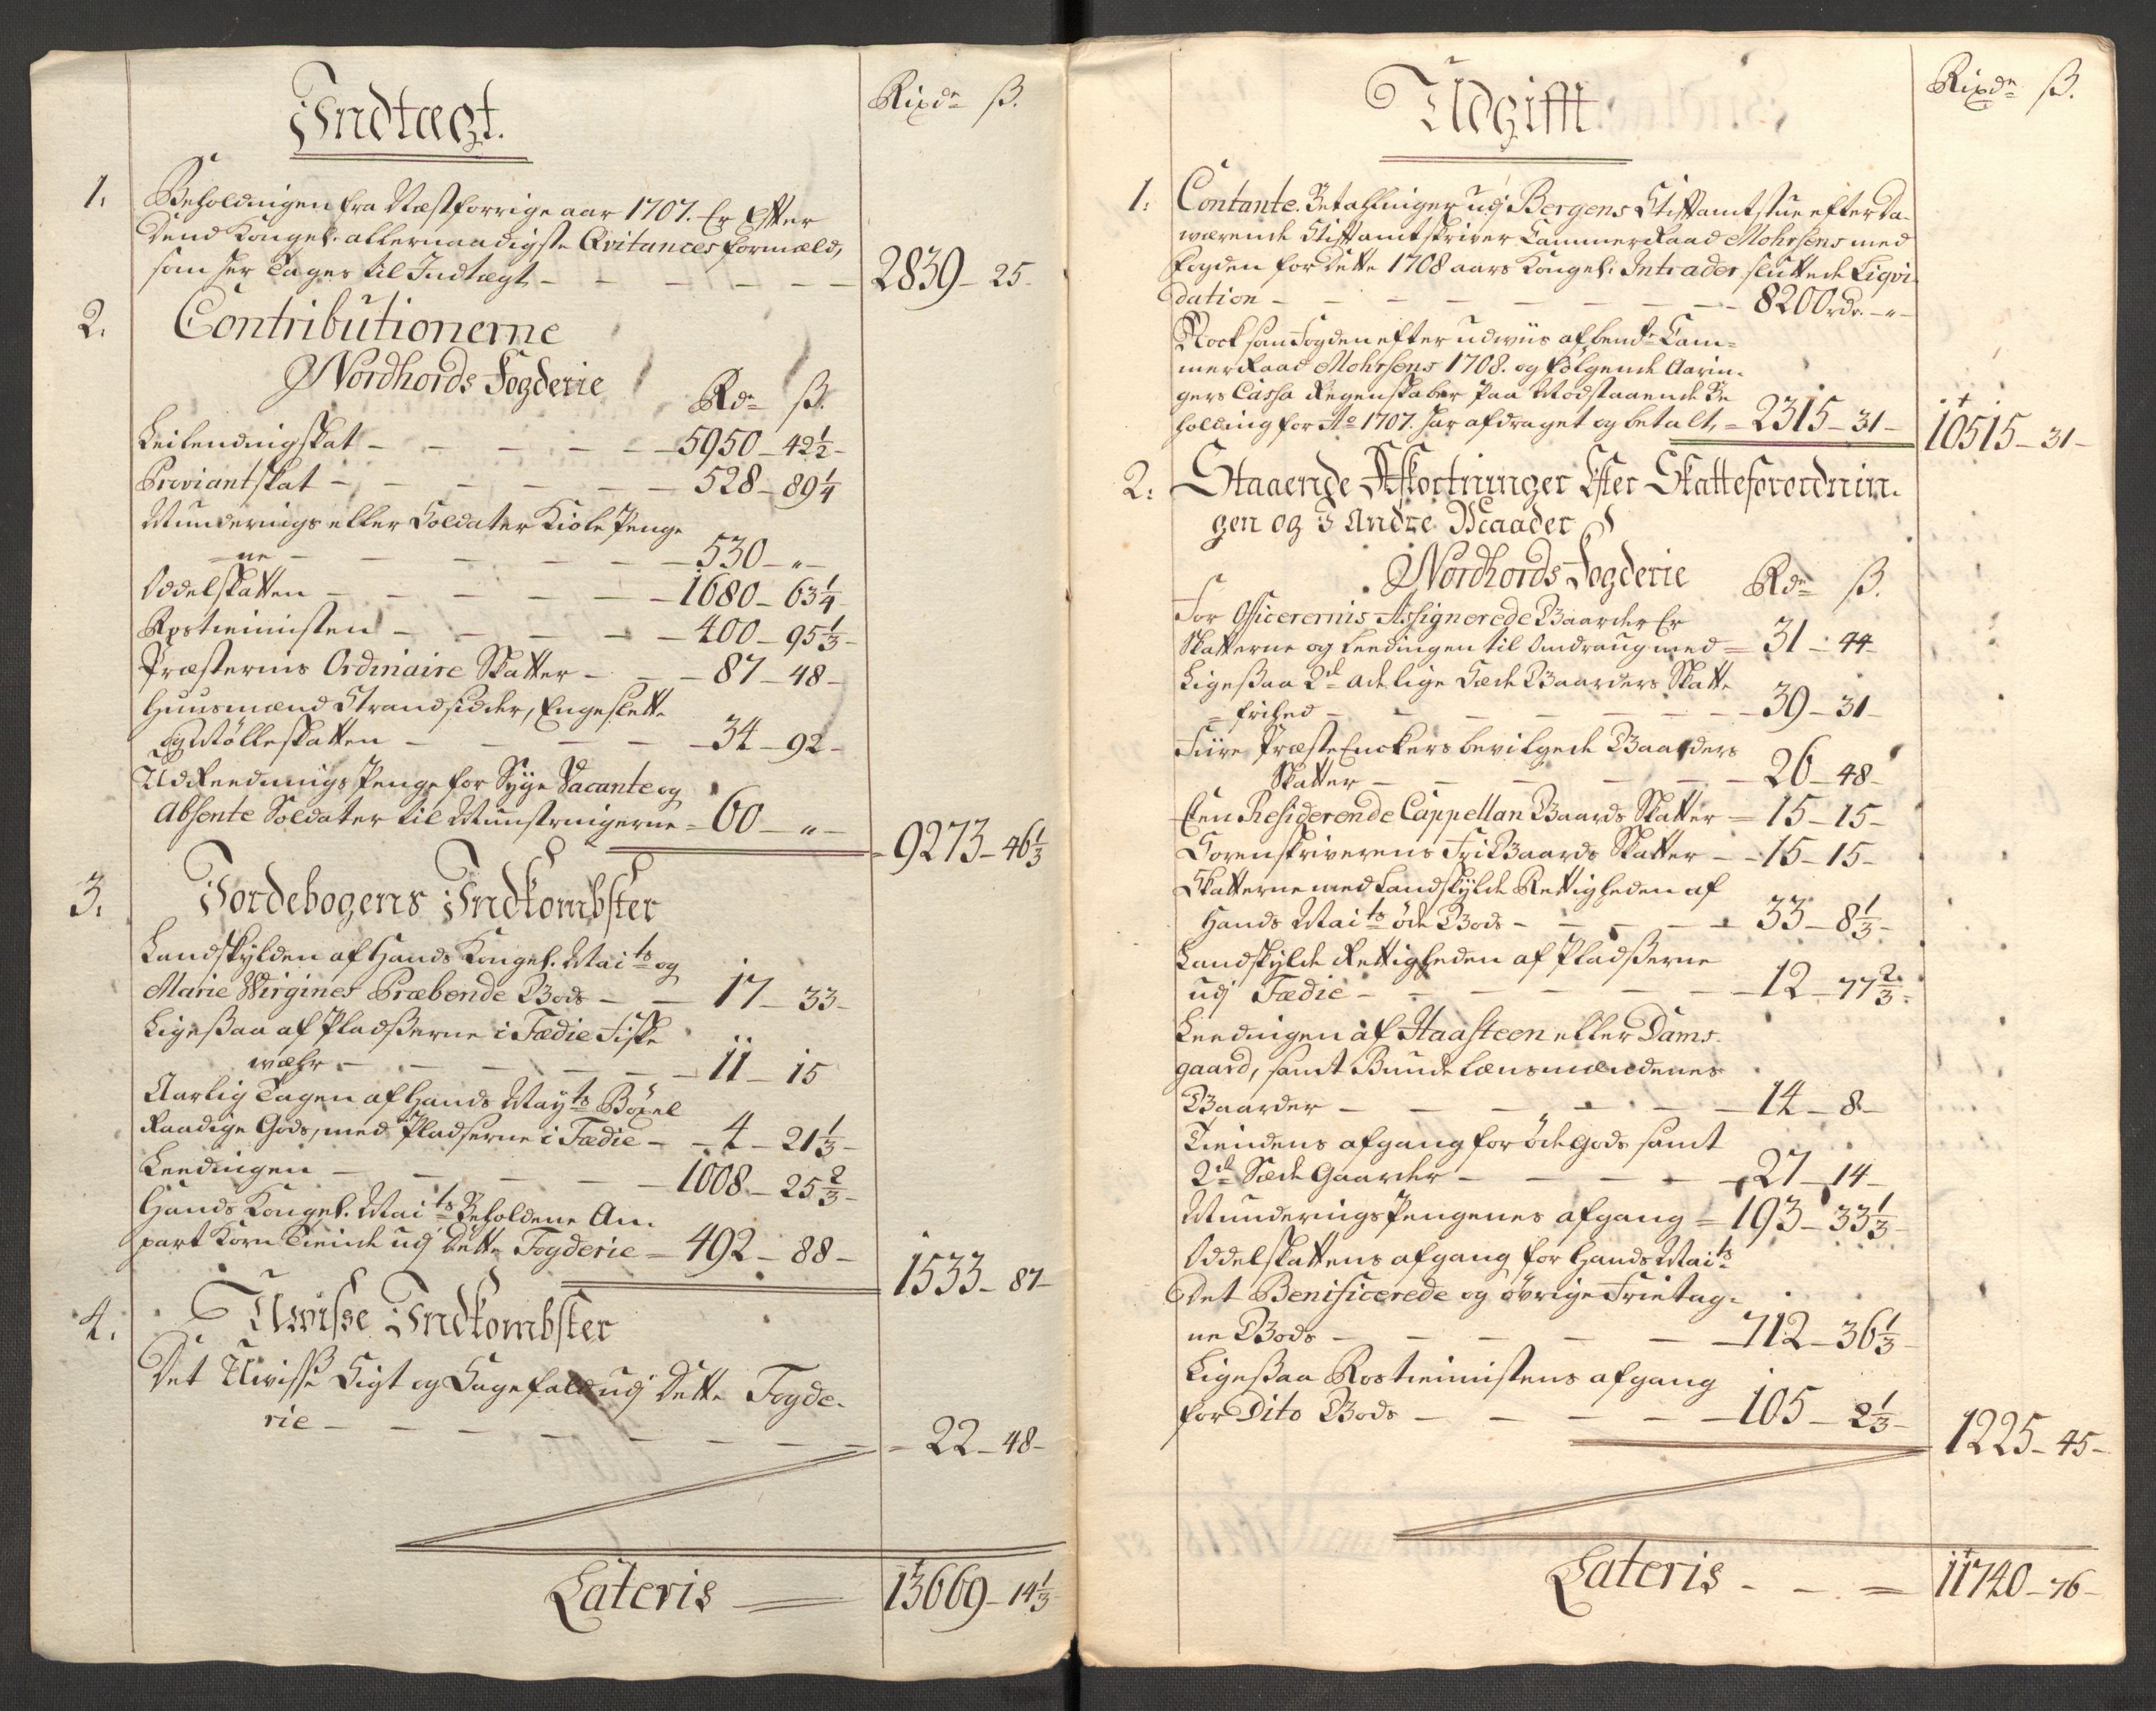 Indtægt.
Rixdr ß.
1. Beholdningen fra Næstforrige aar 1707. Er Efter
dend Kongel. allernaadigste Qvitances formæld,
som her Tages til Indtægt - - - - - - 2839 - 25 -
2. Contributionerne
Nordhords Fogderie
Rdr ß.
Leilendingskat - - - - - 5950 - 42 1/2 -
Proviantskat - - - - - - 528 - 89 1/4
Munderings eller Soldater Kiole Penge
ne - - - - - - 530 - " -
Oddelskatten - - - - - 1680 - 63 1/4 -
Rostieunisten - - - - - 400 - 95 1/3 -
Præsternis Ordinaire Skatter - - - 87 - 48 -
Huusmænd Strandsidder, Engeslette
og Mølleskatten - - - - - 34 - 92 -
UdReednings Penge for Syge Vacante og
Absente Soldater til Munstringerne = 60 - " -
= 9273 - 46 1/3
3. Jordebogens Indkombster
Landskylden af Hands Kongel. Maits og
Marie Wirgines Præbende Gods - - 17 - 33 -
Ligesaa af Pladserne i Fædie Fiske
wæhr - - - - - - 11 - 15
Aarlig Tagen af Hands Mayts Böxel
Raadige Gods, med Pladserne i Fædie - - 4 - 21 1/3 -
Leedingen - - - - - 1008 - 25 2/3 -
Hands Kongel. Maits Beholdene An-
part Korn Tiende udj dette Fogderie = 492 - 88 -
1533 - 87 -
4. Uwisse Indkombster
Det Uwisse Sigt og Sagefald udj dette Fogde-
rie - - - - - - - - - 22 - 48 -
Lateris = 13669 - 14 1/3
Udgifft
Rixdr ß.
1. Contante Betahlinger udj Bergens Stiftamtstue efter Da-
wærende Stiftamtskriver Cammer Raad Mohrsens med
Fogden for dette 1708 aars Kongel. Intrader sluttede Liqvi-
dation - - - - - - - - - 8200 rdr. - " -
Nock som Fogden efter udwiis af bendte Cam-
mer Raad Mohrsens 1708. og følgende Aarin-
gers Cassa Regenskaber paa Modstaaende Be-
holding for Ao 1707. har afdraget og betalt, = 2315 - 31 -
10515 - 31 -
2. Staaende Afkortninger Efter Skatteforordnin-
gen og I Andre Maader
Nordhords Fogderie
Rdr ß.
For Officerernis Assignerede Gaarder Er
Skatterne og Leedingen til Omdraug med = 31 - 44
Ligesaa 2de adelige Sæde Gaarders Skatte
= frihed - - - - - - - 39 - 31 -
Fiire Præste Enckers bevilgede Gaarders
Skatter - - - - - - 26 - 48 -
Een Residerende Cappellan Gaards Skatter = 15 - 15 -
Sorenskriverens Fri Gaards Skatter - - 15 - 15 -
Skatterne med Landskylds Rettigheden af
Hands Maits öde Gods - - - - - 33 - 8 1/3 -
Landskylds Rettigheden af Pladserne
udj Fædie - - - - - - 12 - 77 2/3 -
Leedingen af Haasteen eller Dams-
gaard, samt Bunde Lænsmændenes
Gaarder - - - - - - 14 - 8 -
Tiendens afgang for öde gods samt
2de Sæde Gaarder - - - - - 27 - 14 -
Munderings Pengenes afgang = 193 - 33 1/3 -
Oddelskattens afgang for Hands Maits
Det Benificerede og øvrige Frietag-
ne Gods - - - - - 712 - 36 1/3 -
Ligesaa Rostieunistens afgang
for Dito Gods - - - - - 105 - 2 1/3 -
1225 - 45 -
Lateris - - = 11740 - 76 -